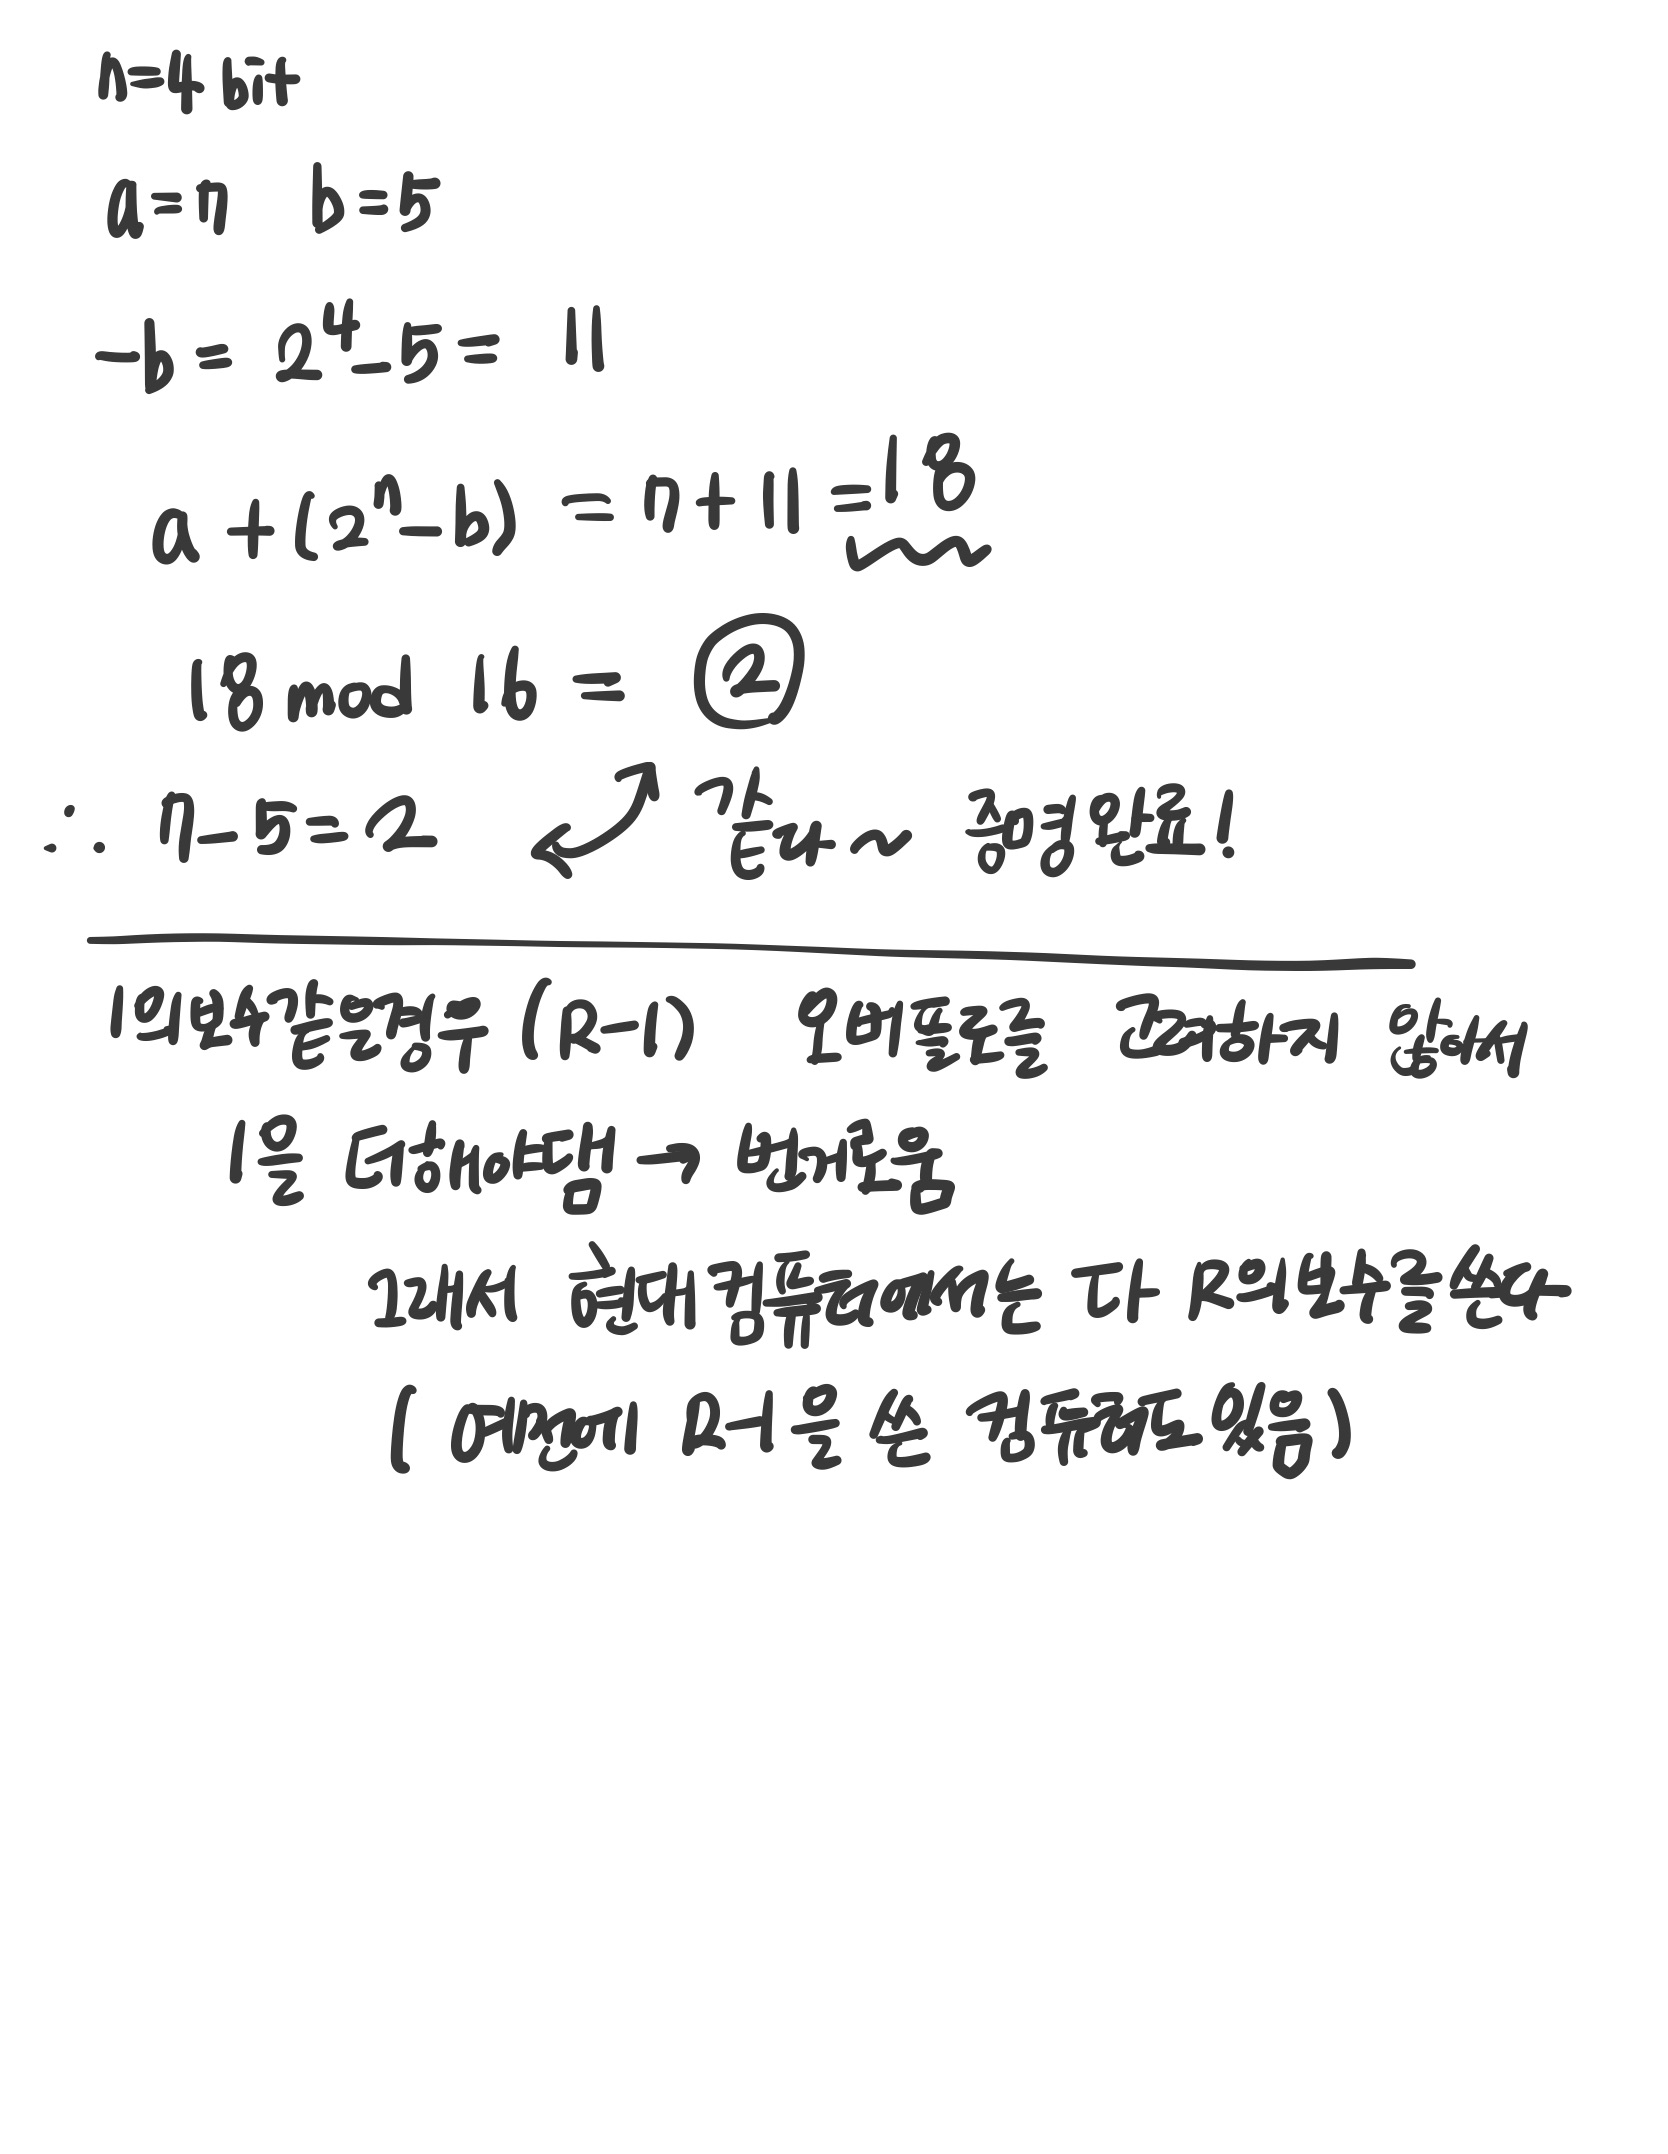 n=4 bit
a=7 b=5
-b = 2⁴-5= 11
a + (2ⁿ-b) = 7+11=18
18 mod 16 = ②
∴ 7-5=2 ↔ 같다~ 증명완료!
1의보수같은경우 (R-1) 오버플로를 고려하지 않아서
1을 더해야댐 → 번거로움
그래서 현대컴퓨터에서는 다 R의보수를쓴다
( 예전에 R-1을 쓴 컴퓨터도있음)